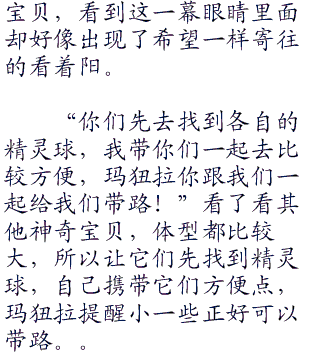 宝贝，看到这一幕眼睛里面
却好像出现了希望一样寄往
的看着阳。
“你们先去找到各自的
精灵球，我带你们一起去比
较方便，玛狃拉你跟我们一
起给我们带路！”看了看其
他神奇宝贝，体型都比较
大，所以让它们先找到精灵
球，自己携带它们方便点，
玛狃拉提醒小一些正好可以
带路。。